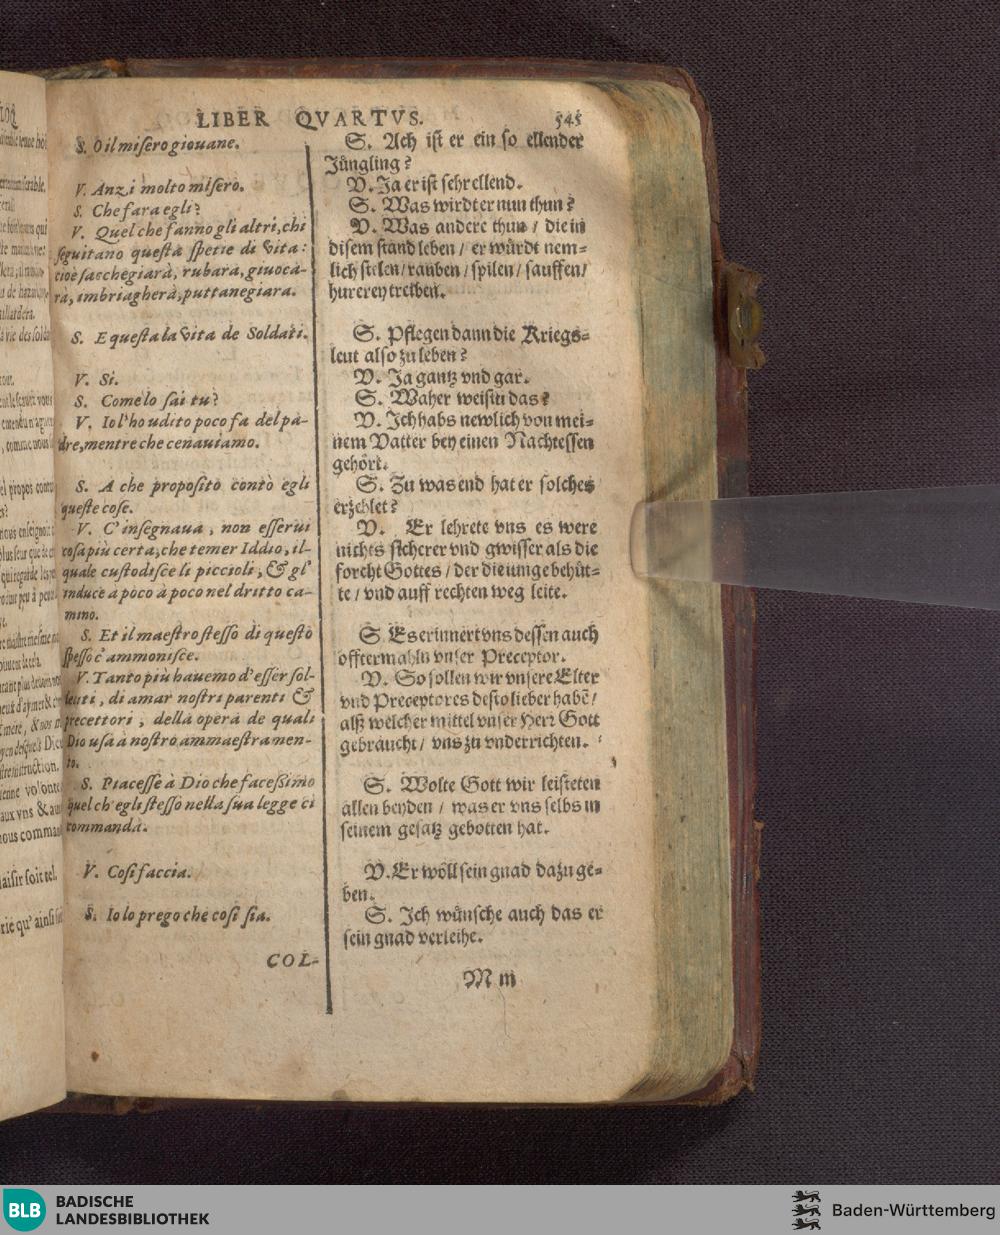 LIBER QVARTVS. 545
S. O il misero giouane.
V. Anzi molto misero.
S. Che fara egli?
V. Quel che fanno gli altri, chi
seguitano questa spetie di vita:
cioè sacchegiarà, rubarà, giuoca-
rà, imbriagherà, puttanegiara.
S. E questa la vita de Soldati.
V. Si.
S. Come lo sai tu?
V. Io l'ho udito poco fa del pa-
dre, mentre che cenauiamo.
S. A che proposito contò egli
queste cose.
V. C'insegnaua, non esserui
cosa più certa, che temer Iddio, il-
quale custodisce li piccioli, & gl'
induce à poco à poco nel dritto ca-
mino.
S. Et il maestro stesso di questo
spesso c'ammonisce.
V. Tanto più hauemo d'esser sol-
leciti, di amar nostri parenti &
precettori, della opera de quali
Dio usa à nostro ammaestramen-
to.
S. Piacesse à Dio che facessimo
quel ch'egli stesso nella sua legge ci
commanda.
V. Cosi faccia.
S. Io lo prego che cosi sia.
COL-
S. Ach ist er ein so ellender
Jüngling?
V. Ja er ist sehr ellend.
S. Was wirdt er nun thun?
V. Was andere thun / die in
disem stand leben / er würdt nem-
lich stelen / rauben / spilen / sauffen /
hurerey treiben.
S. Pflegen dann die Kriegs-
leut also zu leben?
V. Ja gantz vnd gar.
S. Waher weistu das?
V. Ich habs newlich von mei-
nem Vatter bey einen Nachtessen
gehört.
S. Zu was end hat er solches
erzehlet?
V. Er lehrete vns es were
nichts sicherer vnd gwisser als die
forcht Gottes / der die iunge behüt-
te / vnd auff rechten weg leite.
S Es erinnert vns dessen auch
offtermahln vnser Preceptor.
V. So sollen wir vnsere Elter
vnd Preceptores desto lieber habē /
alß welcher mittel vnser Herr Gott
gebraucht / vns zu vnderrichten.
S. Wolte Gott wir leisteten
allen beyden / was er vns selbs in
seinem gesatz gebotten hat.
V. Er wöll sein gnad dazu ge-
ben.
S. Ich wünsche auch das er
sein gnad verleihe.
M m
BLB BADISCHE
LANDESBIBLIOTHEK
Baden-Württemberg